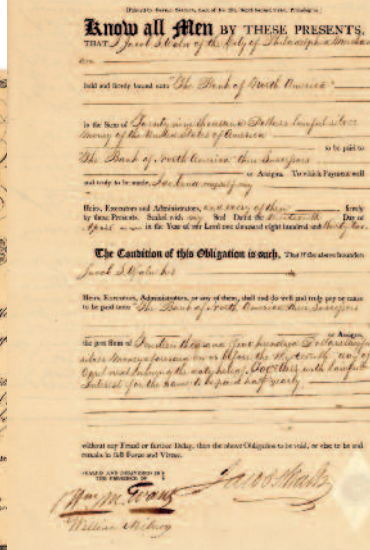 Know all Men BY THESE PRESENTS,
THAT I Jacob S. Waln of the City of Philadelphia Merchant
am
held and firmly bound unto "The Bank of North America"
in the Sum of Twenty nine thousand Dollars lawful silver
money of the United States of America
to be paid to
"The Bank of North America" their Successors
or Assigns. To which Payment well
and truly to be made, I do bind myself my
Heirs, Executors and Administrators, and every of them firmly
by these Presents. Sealed with my Seal Dated the Day of
April in the Year of our Lord one thousand eight hundred and thirty two.
The Condition of this Obligation is such, That if the above bounden
Jacob S. Waln his
Heirs, Executors, Administrators, or any of them, shall and do well and truly pay or cause
to be paid unto "The Bank of North America" their Successors
or Assigns,
the just Sum of Fourteen thousand five hundred Dollars lawful
silver Money aforesaid on or before the day of
April next ensuing the date hereof Together with lawful
Interest for the same to be paid half yearly
without any Fraud or further Delay, then the above Obligation to be void, or else to be and
remain in full Force and Virtue.
SEALED AND DELIVERED IN
THE PRESENCE OF
Jacob S Waln
Wm. M. Evans
William Milnor